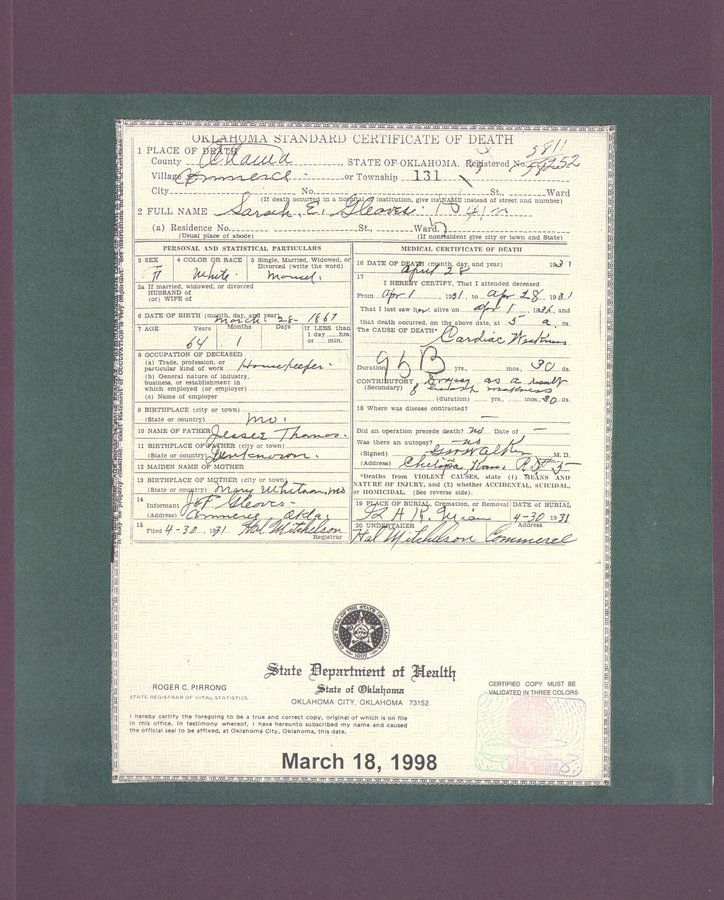 OKLAHOMA STANDARD CERTIFICATE OF DEATH
1 PLACE OF DEATH
County Ottawa, STATE OF OKLAHOMA. Registered No. 5811
Village Commerce or Township 131
City No. St., Ward
(If death occurred in a hospital or institution, give its NAME instead of street and number)
2 FULL NAME Sarah. E. Gleaves.
(a) Residence No. St., Ward.
(Usual place of abode) (If nonresident give city or town and State)
PERSONAL AND STATISTICAL PARTICULARS
3 SEX 4 COLOR OR RACE 5 Single, Married, Widowed, or
Divorced (write the word)
White. Married.
5a If married, widowed, or divorced
HUSBAND OF
(or) WIFE OF
6 DATE OF BIRTH (month, day, and year) March. 28- 1867
7 AGE Years Months Days If LESS than
1 day....hrs.
or .... min.
64 1
8 OCCUPATION OF DECEASED
(a) Trade, profession, or
particular kind of work Housekeeper.
(b) General nature of industry,
business, or establishment in
which employed (or employer)
(c) Name of employer
9 BIRTHPLACE (city or town)
(State or country) Mo.
10 NAME OF FATHER Jessee Thomas.
11 BIRTHPLACE OF FATHER (city or town)
(State or country)
12 MAIDEN NAME OF MOTHER
13 BIRTHPLACE OF MOTHER (city or town)
(State or country) Mary Whitman, Mo
14
Informant Gleaves
(Address) Commerce, Okla.
15
Filed 4-30- 1931 Hal Mitchelson
Registrar
MEDICAL CERTIFICATE OF DEATH
16 DATE OF DEATH (month, day, and year) April 28 1931
17
I HEREBY CERTIFY, That I attended deceased
From Apr 1, 1931, to Apr 28, 1931
That I last saw her alive on Apr 1, 1931, and
that death occurred, on the above date, at 5 a. m.
The CAUSE OF DEATH*
Cardiac Weakness
95B
Duration yrs. mos. 30 ds.
CONTRIBUTORY Dropsy as a result
(Secondary) of weakness
(duration) yrs. mos. 30 ds.
18 Where was disease contracted?
Did an operation precede death? no Date of –
Was there an autopsy? – no
(Signed) Walker M. D.
(Address) Chetopa, Kans. R 5
*Deaths from VIOLENT CAUSES, state (1) MEANS AND
NATURE OF INJURY, and (2) whether ACCIDENTAL, SUICIDAL,
or HOMICIDAL. (See reverse side).
19 PLACE OF BURIAL, Cremation, or Removal DATE OF BURIAL
G A R Miami 4-30 1931
20 UNDERTAKER Address
Hal Mitchelson Commerce
GREAT SEAL OF THE STATE OF OKLAHOMA
1907
State Department of Health
State of Oklahoma
OKLAHOMA CITY, OKLAHOMA 73152
ROGER C. PIRRONG
STATE REGISTRAR OF VITAL STATISTICS
CERTIFIED COPY MUST BE
VALIDATED IN THREE COLORS
I hereby certify the foregoing to be a true and correct copy, original of which is on file
in this office. In testimony whereof, I have hereunto subscribed my name and caused
the official seal to be affixed, at Oklahoma City, Oklahoma, this date.
March 18, 1998